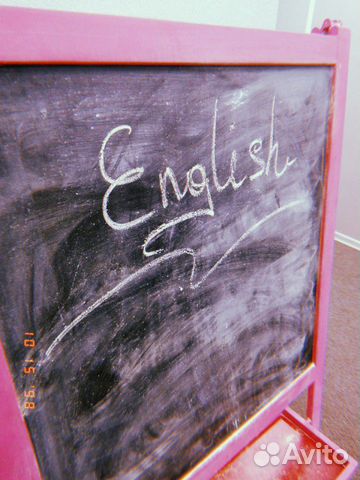 English
10 15 '98
Avito